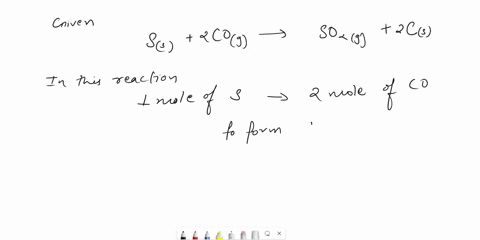 Given
S(s) + 2CO(g) → SO2(g) + 2C(s)
In this reaction
1 mole of S → 2 mole of CO
to form